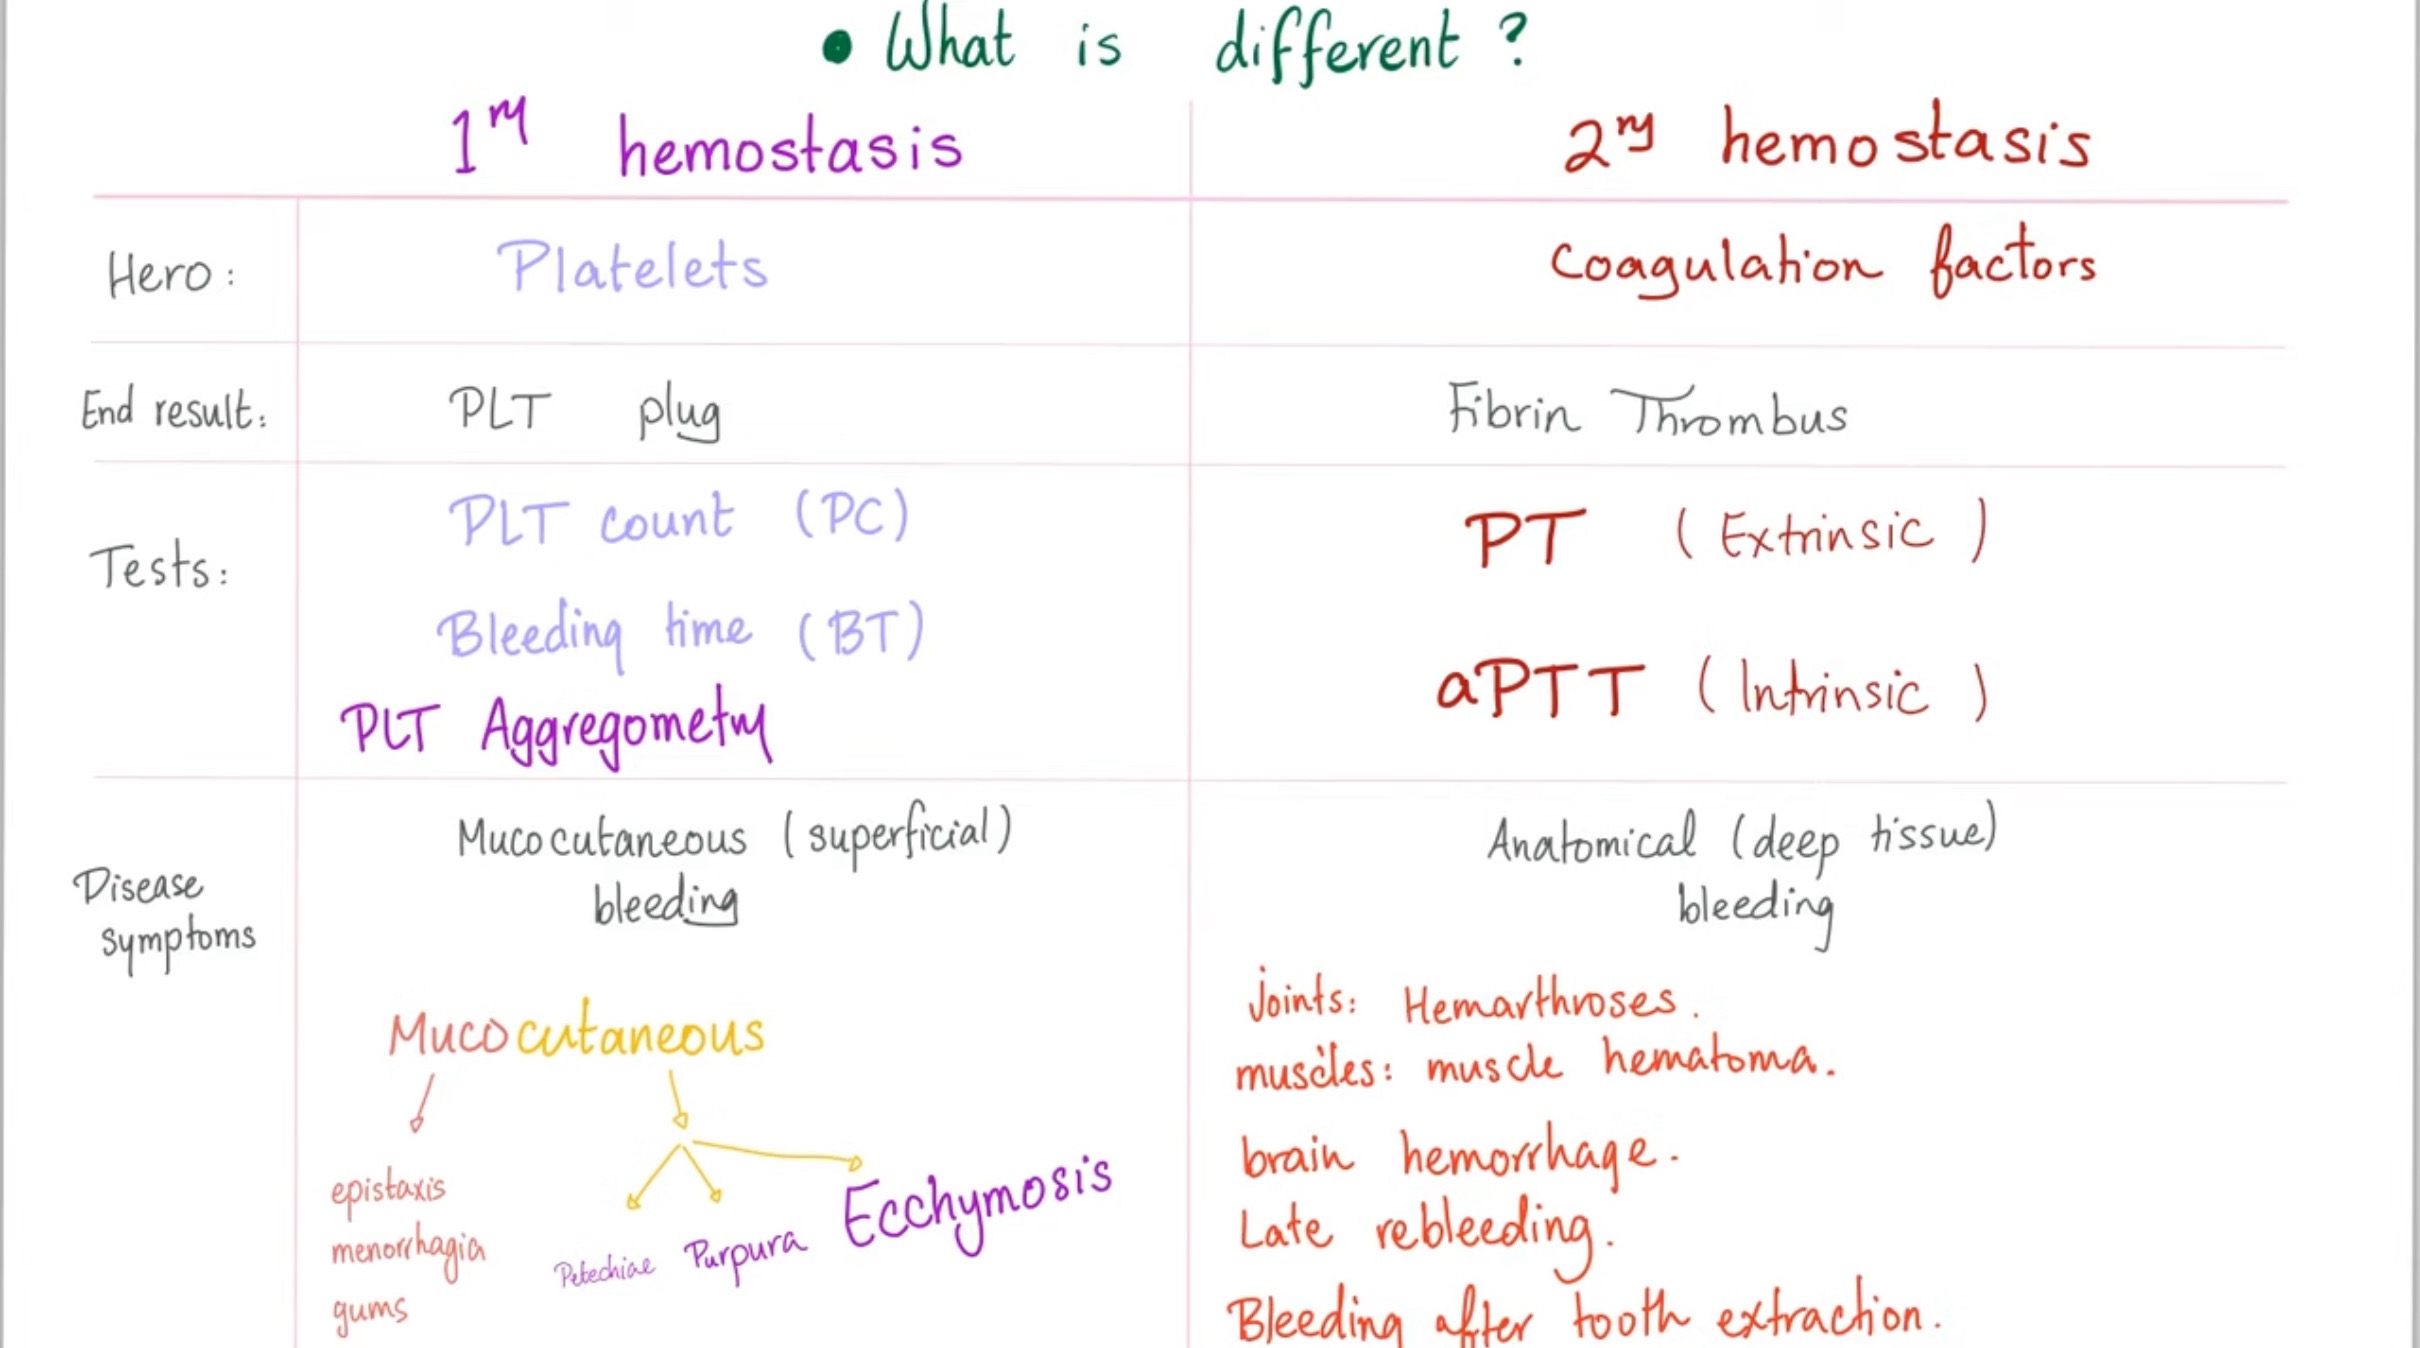 • What is different ?
1ry hemostasis
2ry hemostasis
Hero:
Platelets
Coagulation factors
End result:
PLT plug
Fibrin Thrombus
Tests:
PLT count (PC)
Bleeding time (BT)
PLT Aggregometry
PT (Extrinsic)
aPTT (Intrinsic)
Disease
symptoms
Mucocutaneous (superficial)
bleeding
Mucocutaneous
epistaxis
menorrhagia
gums
Petechiae
Purpura
Ecchymosis
Anatomical (deep tissue)
bleeding
joints: Hemarthroses.
muscles: muscle hematoma.
brain hemorrhage.
Late rebleeding.
Bleeding after tooth extraction.